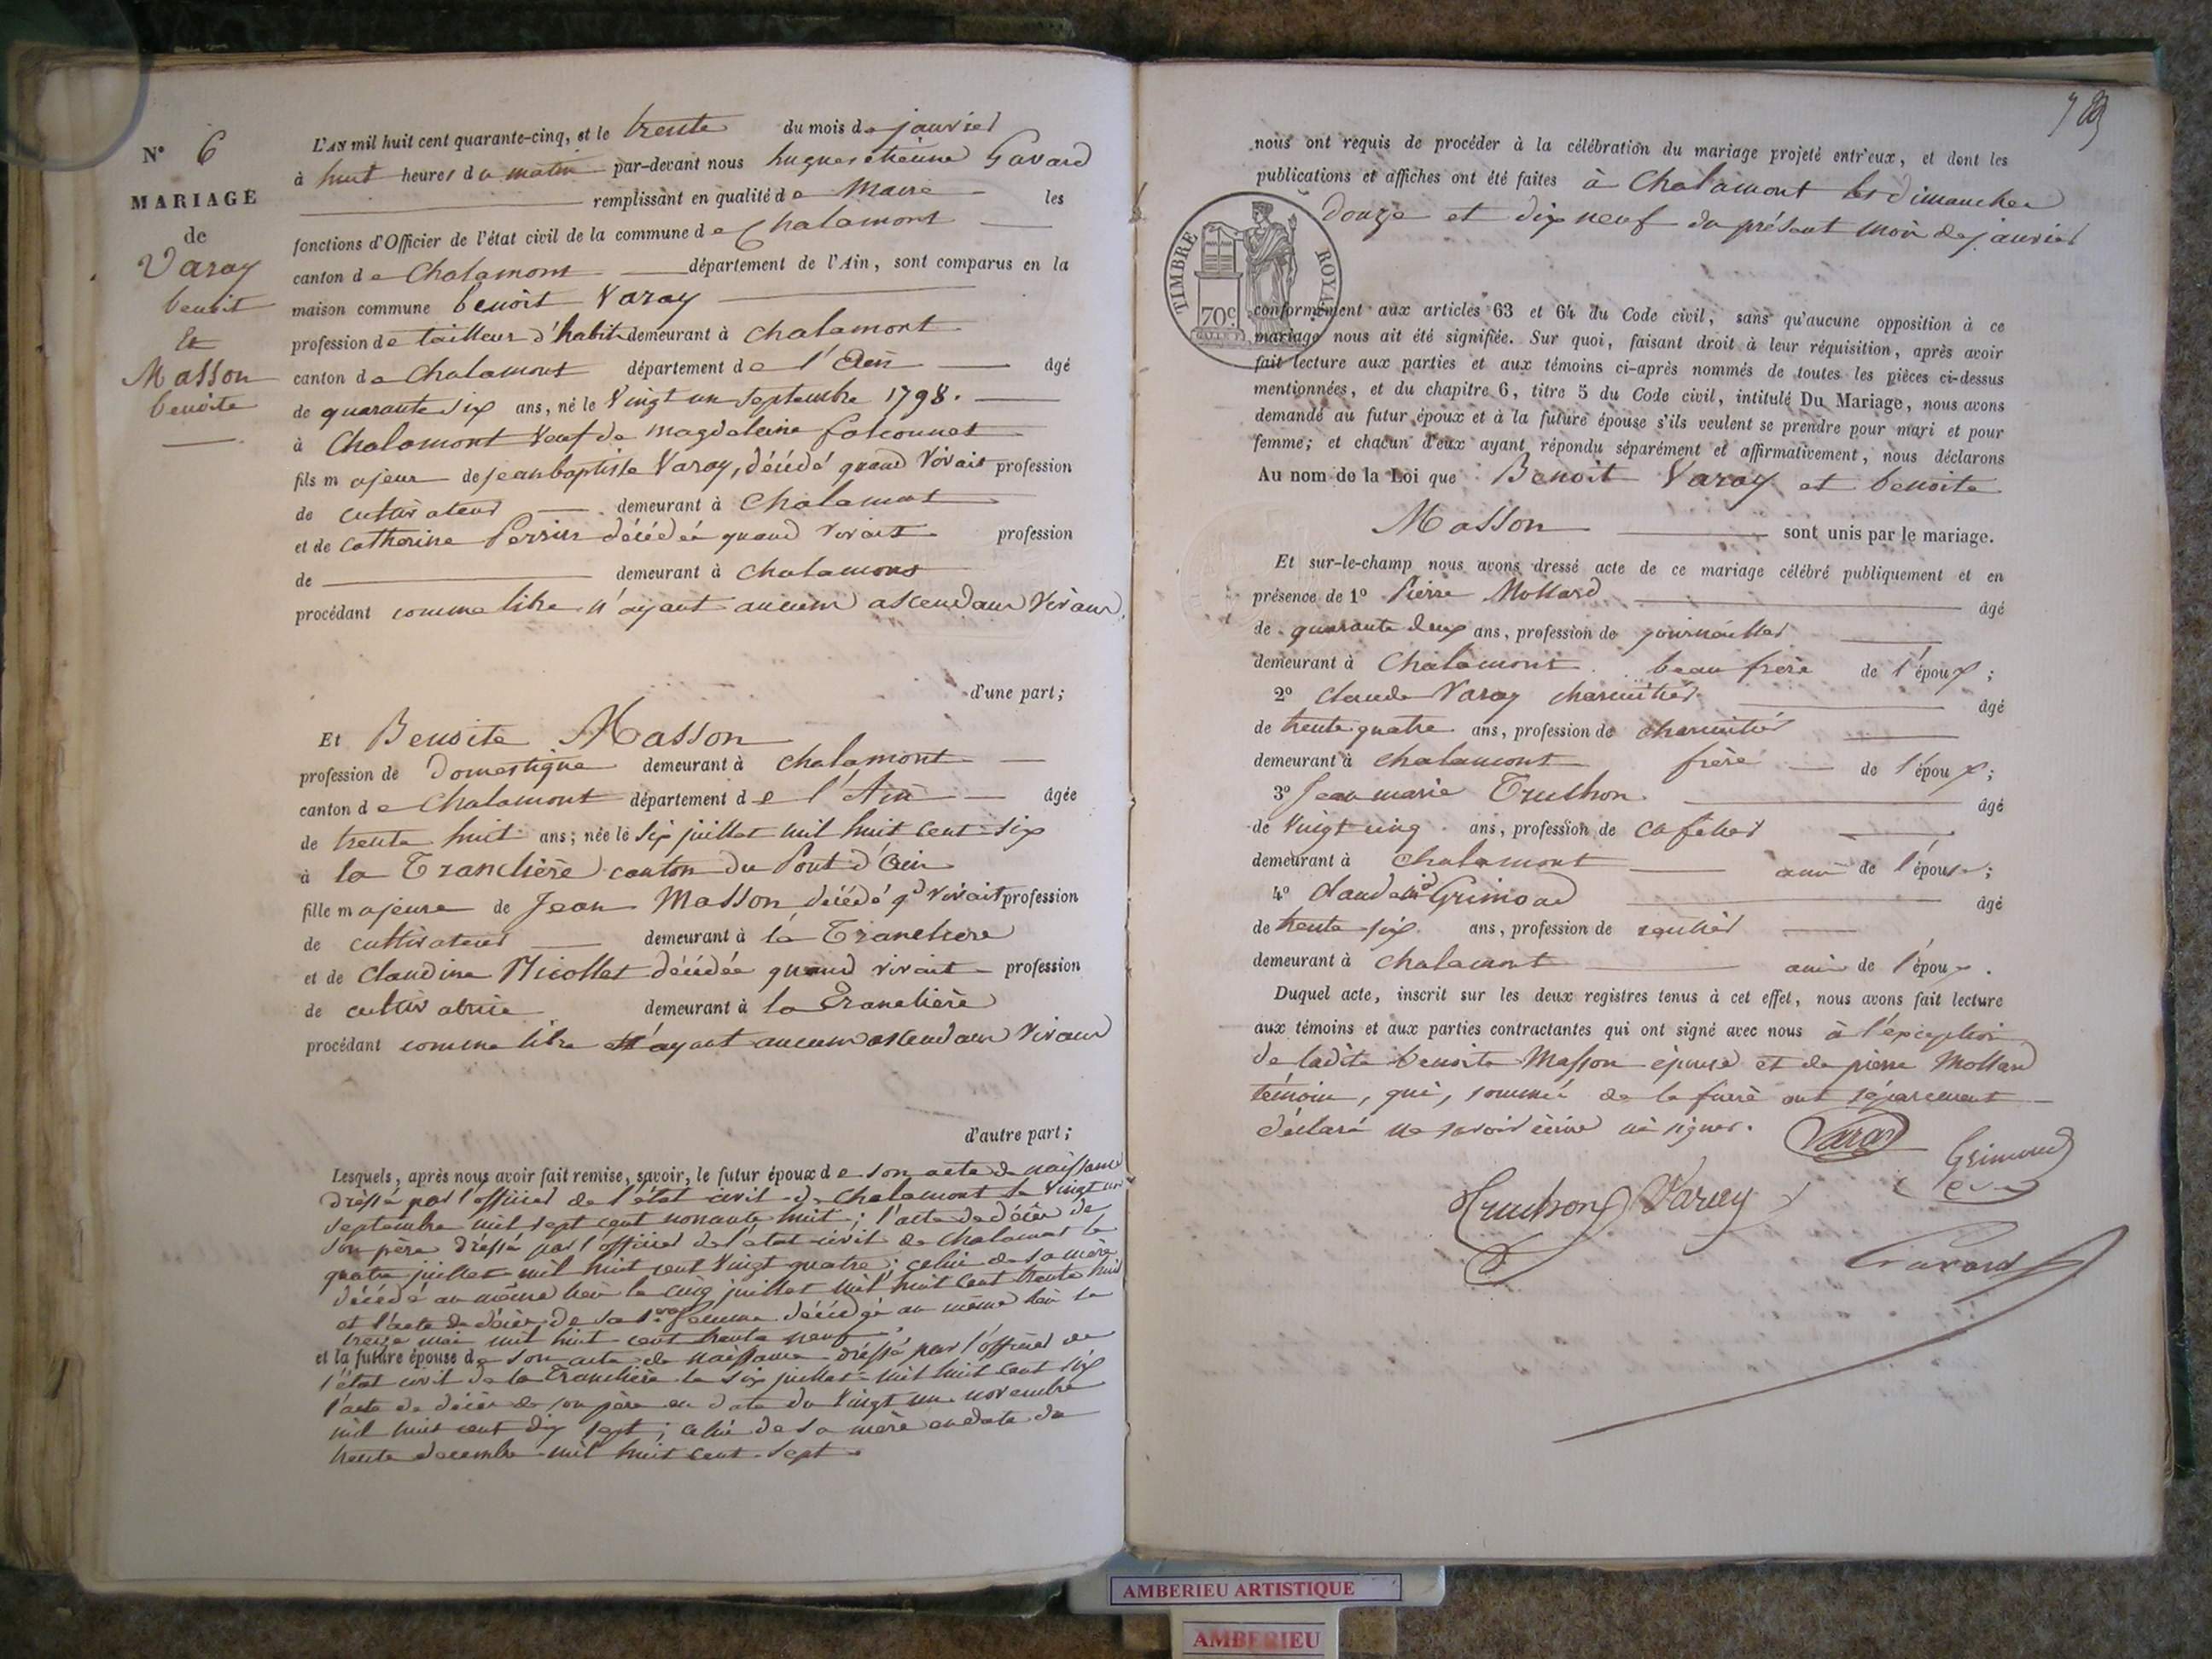 N° 6
MARIAGE
de
Varay
benoit
Et
Masson
benoite
L'AN mil huit cent quarante-cinq, et le trente du mois de janvier
à huit heures du matin par-devant nous hugues etienne Gavard
remplissant en qualité de Maire les
fonctions d'Officier de l'état civil de la commune de Chalamont
canton de Chalamont département de l'Ain, sont comparus en la
maison commune benoit Varay
profession de tailleur d'habit demeurant à Chalamont
canton de Chalamont département de l'Ain âgé
de quarante six ans, né le Vingt un Septembre 1798.
à Chalamont Veuf de magdeleine falconnet
fils majeur de jean baptiste Varay, décédé quand Vivait profession
de cultivateur demeurant à Chalamont
et de Catherine Perrier décédée quand Vivait profession
de demeurant à Chalamont
procédant comme libre n'ayant aucun ascendant Vivant
d'une part;
Et Benoite Masson
profession de Domestique demeurant à Chalamont
canton de Chalamont département de l'Ain âgée
de trente huit ans; née le Six juillet mil huit cent six
à la Tranclière canton du Pont d'Ain
fille majeure de Jean Masson décédé qd vivait profession
de cultivateur demeurant à la Tranclière
et de Claudine Nicollet décédée quand vivait profession
de cultivatrice demeurant à la Tranclière
procédant comme libre n'ayant aucun ascendant Vivant
d'autre part;
Lesquels, après nous avoir fait remise, savoir, le futur époux de son acte de naissance
dressé par l'officier de l'état civil de Chalamont le Vingt un
Septembre mil sept cent nonante huit; l'acte de décès de
son père dressé par l'officier de l'état civil de Chalamont le
quatre juillet mil huit cent Vingt quatre; celui de sa mère
décédé au même lieu le cinq juillet mil huit Cent trente huit
et l'acte de décès de sa 1ere femme décédée au même lieu le
treize mai mil huit cent trente neuf
et la future épouse de son acte de naissance dressé par l'officier de
l'état civil de la Tranclière le six juillet mil huit Cent six
l'acte de décès de son père en date du Vingt un novembre
mil huit cent dix sept; celui de sa mère en date du
trente decembre mil huit cent sept.
nous ont requis de procéder à la célébration du mariage projeté entr'eux, et dont les
publications et affiches ont été faites à Chalamont les dimanches
Douze et dix neuf du présent mois de janvier
TIMBRE ROYAL
70c
conformément aux articles 63 et 64 du Code civil, sans qu'aucune opposition à ce
mariage nous ait été signifiée. Sur quoi, faisant droit à leur réquisition, après avoir
fait lecture aux parties et aux témoins ci-après nommés de toutes les pièces ci-dessus
mentionnées, et du chapitre 6, titre 5 du Code civil, intitulé Du Mariage, nous avons
demandé au futur époux et à la future épouse s'ils veulent se prendre pour mari et pour
femme; et chacun d'eux ayant répondu séparément et affirmativement, nous déclarons
Au nom de la Loi que Benoit Varay et benoite
Masson sont unis par le mariage.
Et sur-le-champ nous avons dressé acte de ce mariage célébré publiquement et en
présence de 1° Pierre Mollard âgé
de quarante deux ans, profession de journaillier
demeurant à Chalamont beau frère de l'époux;
2° Claude Varay charcutier âgé
de trente quatre ans, profession de charcutier
demeurant à Chalamont frère de l'époux;
3° Jean marie Truchon âgé
de Vingt cinq ans, profession de cafetier
demeurant à Chalamont ami de l'épouse;
4° Claude Grimoud âgé
de trente six ans, profession de rentier
demeurant à Chalamont ami de l'époux.
Duquel acte, inscrit sur les deux registres tenus à cet effet, nous avons fait lecture
aux témoins et aux parties contractantes qui ont signé avec nous à l'éxception
de ladite benoite Masson épouse et de pierre Mollard
témoin, qui, sommés de le faire ont séparement
déclaré ne savoir écrire ni signer.
Varay
Grimoud
Truchon Varay
Gavard
AMBERIEU ARTISTIQUE
AMBERIEU